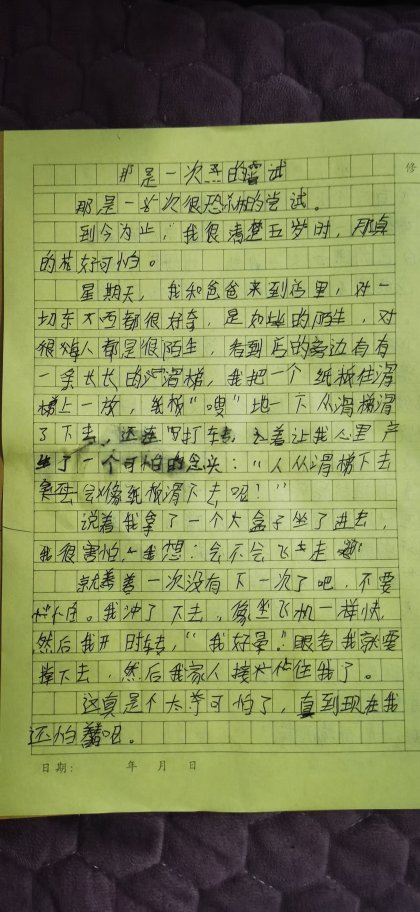 那是一次的尝试
那是一次很恐怖的尝试。
到今为止，我很清楚五岁时，
的好可怕。
星期天，我和爸爸来到店里，对一
切东西都很好奇，是如此的陌生，对
很人都是很陌生，看到店的旁边有有
一条长长的滑梯，我把一个纸板往滑
梯上一放，纸板“嗖”地一下从滑梯滑
了下去，还连打转，着让我心里产
了一个可怕的念头：“人从滑梯下去
会像纸板滑下去呢！”
说着我拿了一个大盒子坐了进去，
我很害怕，我想：会不会飞走
就善一次没有下一次了吧，不要
怕。我冲了下去，像坐飞机一样快，
然后我开时转，“我好晕。”眼看我就要
掉下去，然后我家人接住我了。
这真是个太可怕了，直到现在我
还怕着吧。
日期： 年 月 日
修